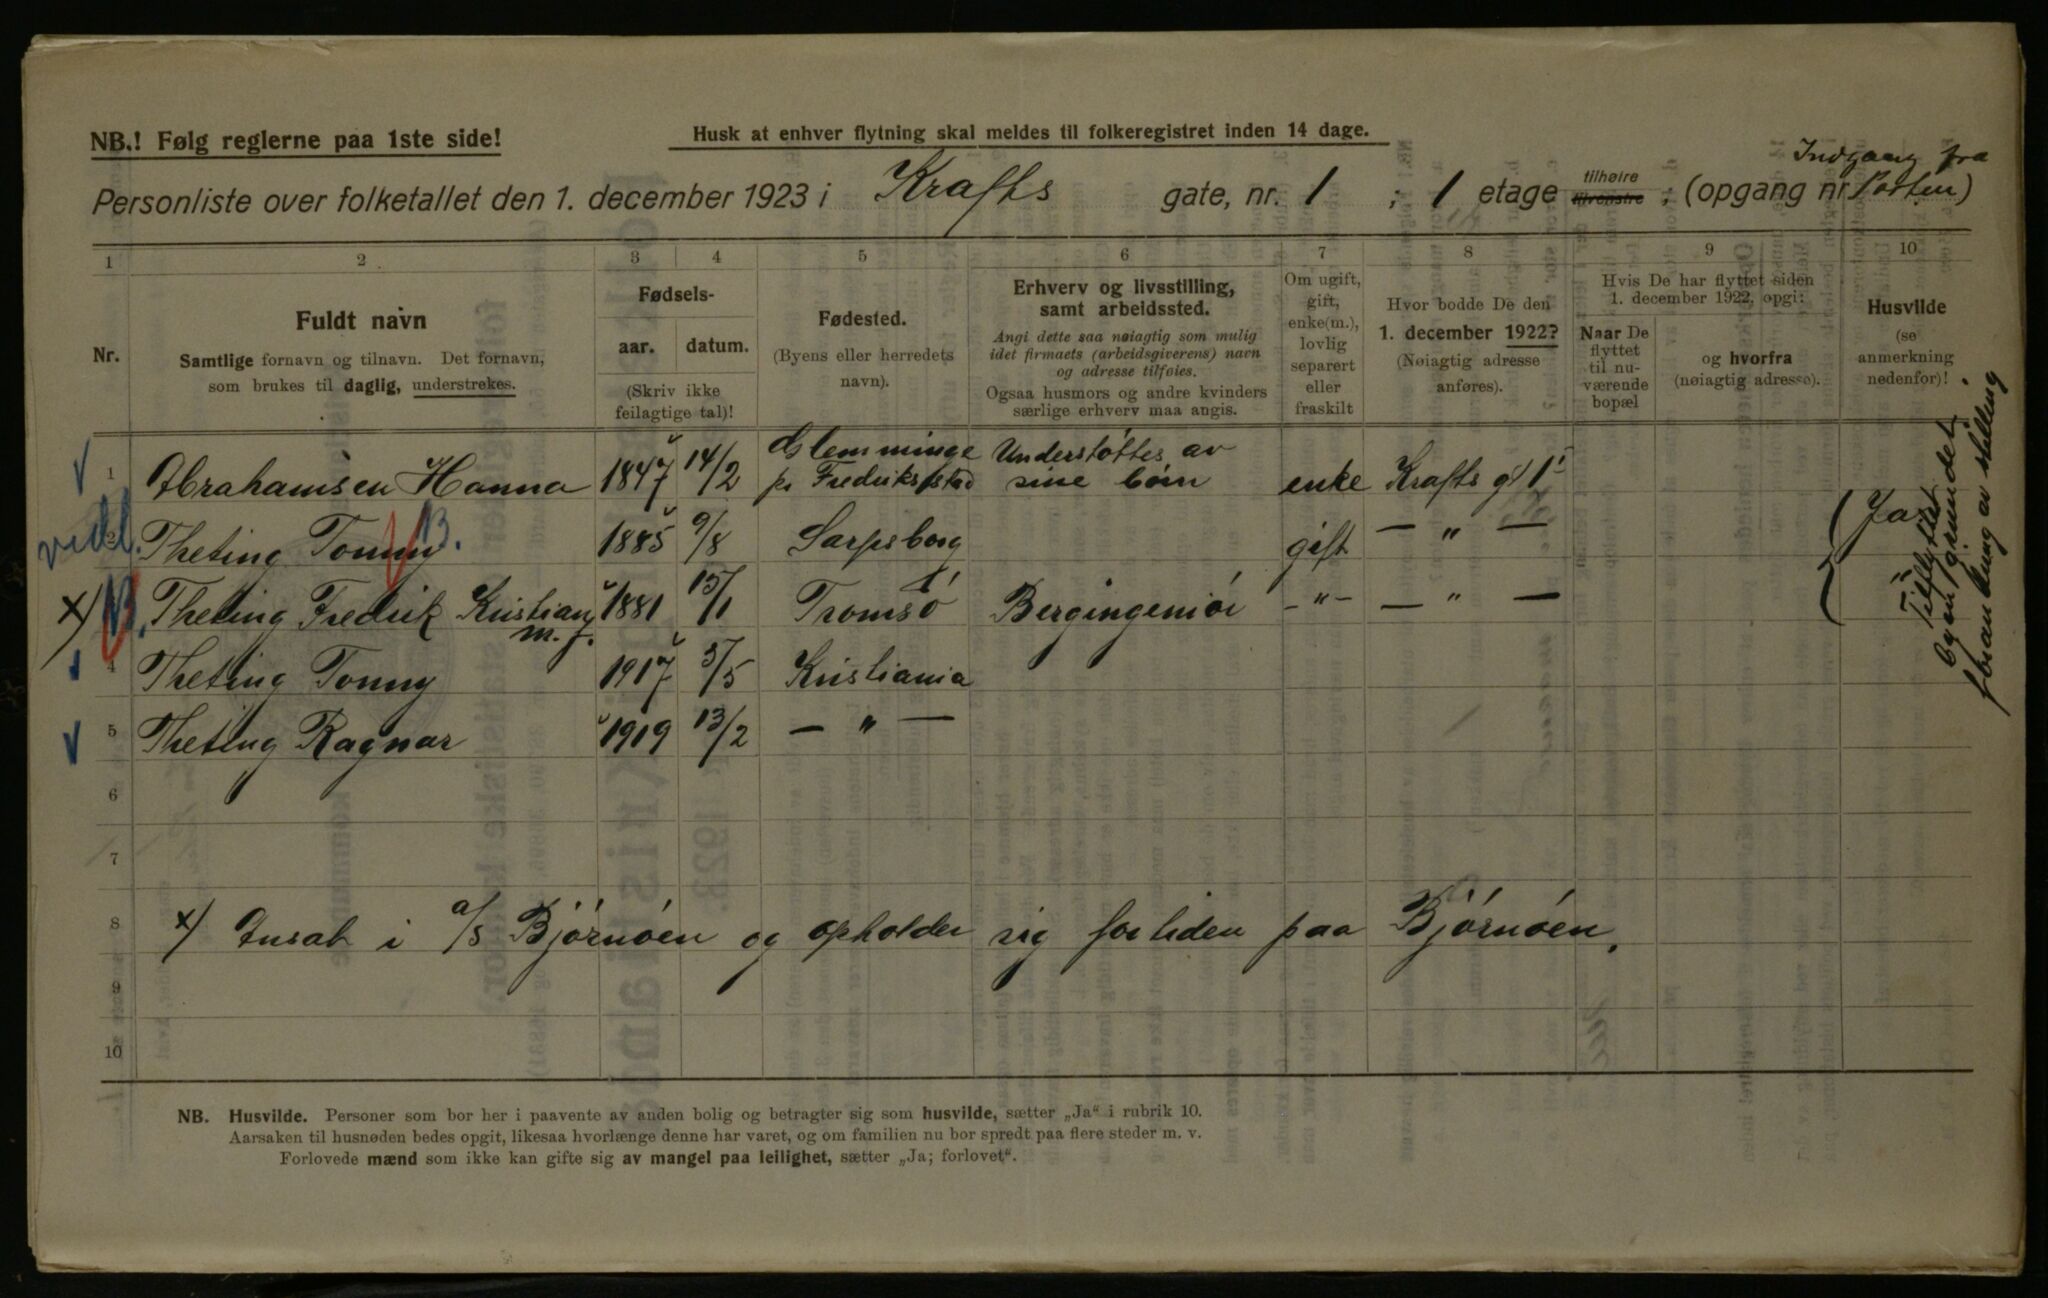 NB.! Følg reglerne paa 1ste side!
Husk at enhver flytning skal meldes til folkeregistret inden 14 dage.
Indgang fra
Personliste over folketallet den 1. december 1923 i Krafts gate, nr. 1 ; 1 etage tilhøire tilvenstre ; (opgang nr. Porten)
1 2 3 4 5 6 7 8 9 10
Nr.
Fuldt navn
Samtlige fornavn og tilnavn. Det fornavn,
som brukes til daglig, understrekes.
Fødsels-
aar. datum.
(Skriv ikke
feilagtige tal)!
Fødested.
(Byens eller herredets
navn).
Erhverv og livsstilling,
samt arbeidssted.
Angi dette saa nøiagtig som mulig
idet firmaets (arbeidsgiverens) navn
og adresse tilføies.
Ogsaa husmors og andre kvinders
særlige erhverv maa angis.
Om ugift,
gift,
enke(m.),
lovlig
separert
eller
fraskilt
Hvor bodde De den
1. december 1922?
(Nøiagtig adresse
anføres).
Hvis De har flyttet siden
1. december 1922, opgi:
Naar De
flyttet
til nu-
værende
bopæl
og hvorfra
(nøiagtig adresse).
Husvilde
(se
anmerkning
nedenfor)!
1 Abrahamsen Hanna 1847 14/2 Glemminge pr Fredriksstad Understøttes av sine børn enke Krafts gt 1
vedl. 2 Theting Tonny B. 1885 9/8 Sarpsborg gift — " — Ja
x) B. Theting Fredrik Kristian 1881 15/1 Tromsø Bergingeniør -"- — " —
m. f.
4 Theting Tonny 1917 5/5 Kristiania
5 Theting Ragnar 1919 13/2 — " —
Tilflyttet
byen grundet
forandring av stilling
6
7
8 x) Ansat i a/s Bjørnøen og opholder sig for tiden paa Bjørnøen.
9
10
NB. Husvilde. Personer som bor her i paavente av anden bolig og betragter sig som husvilde, sætter „Ja" i rubrik 10.
Aarsaken til husnøden bedes opgit, likesaa hvorlænge denne har varet, og om familien nu bor spredt paa flere steder m. v.
Forlovede mænd som ikke kan gifte sig av mangel paa leilighet, sætter „Ja; forlovet".